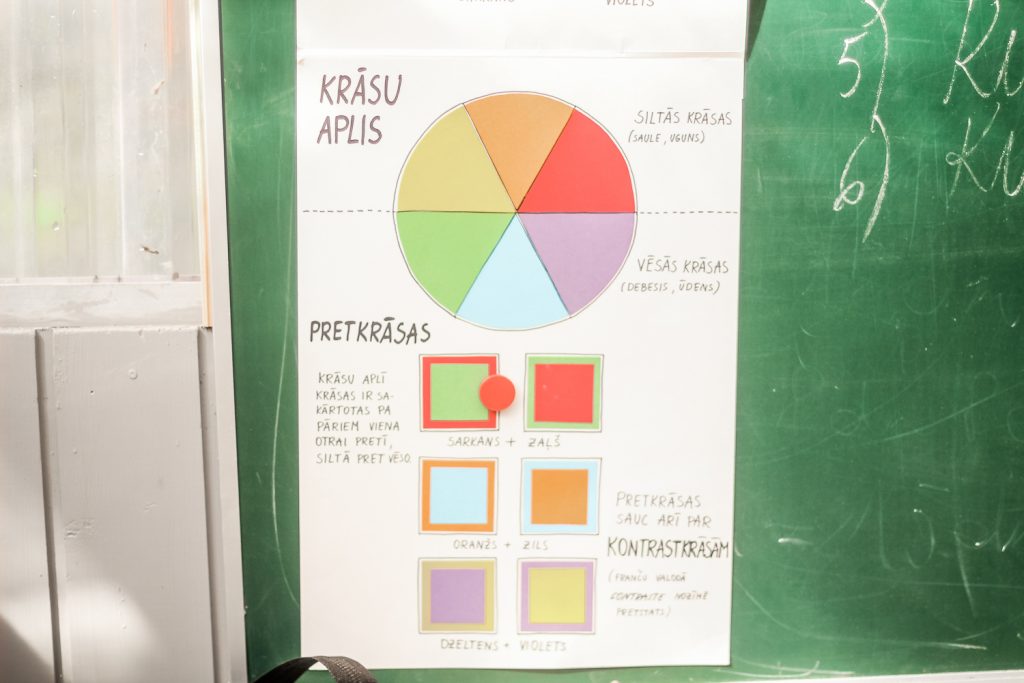 VIOLETS
KRĀSU
APLIS
SILTĀS KRĀSAS
(SAULE, UGUNS)
VĒSĀS KRĀSAS
(DEBESIS, ŪDENS)
PRETKRĀSAS
KRĀSU APLĪ
KRĀSAS IR SA-
KĀRTOTAS PA
PĀRIEM VIENA
OTRAI PRETĪ,
SILTĀ PRET VĒSO.
SARKANS + ZAĻŠ
ORANŽS + ZILS
DZELTENS + VIOLETS
PRETKRĀSAS
SAUC ARĪ PAR
KONTRASTKRĀSĀM
(FRANČU VALODĀ
CONTRASTE NOZĪMĒ
PRETSTATS)
5)
6)